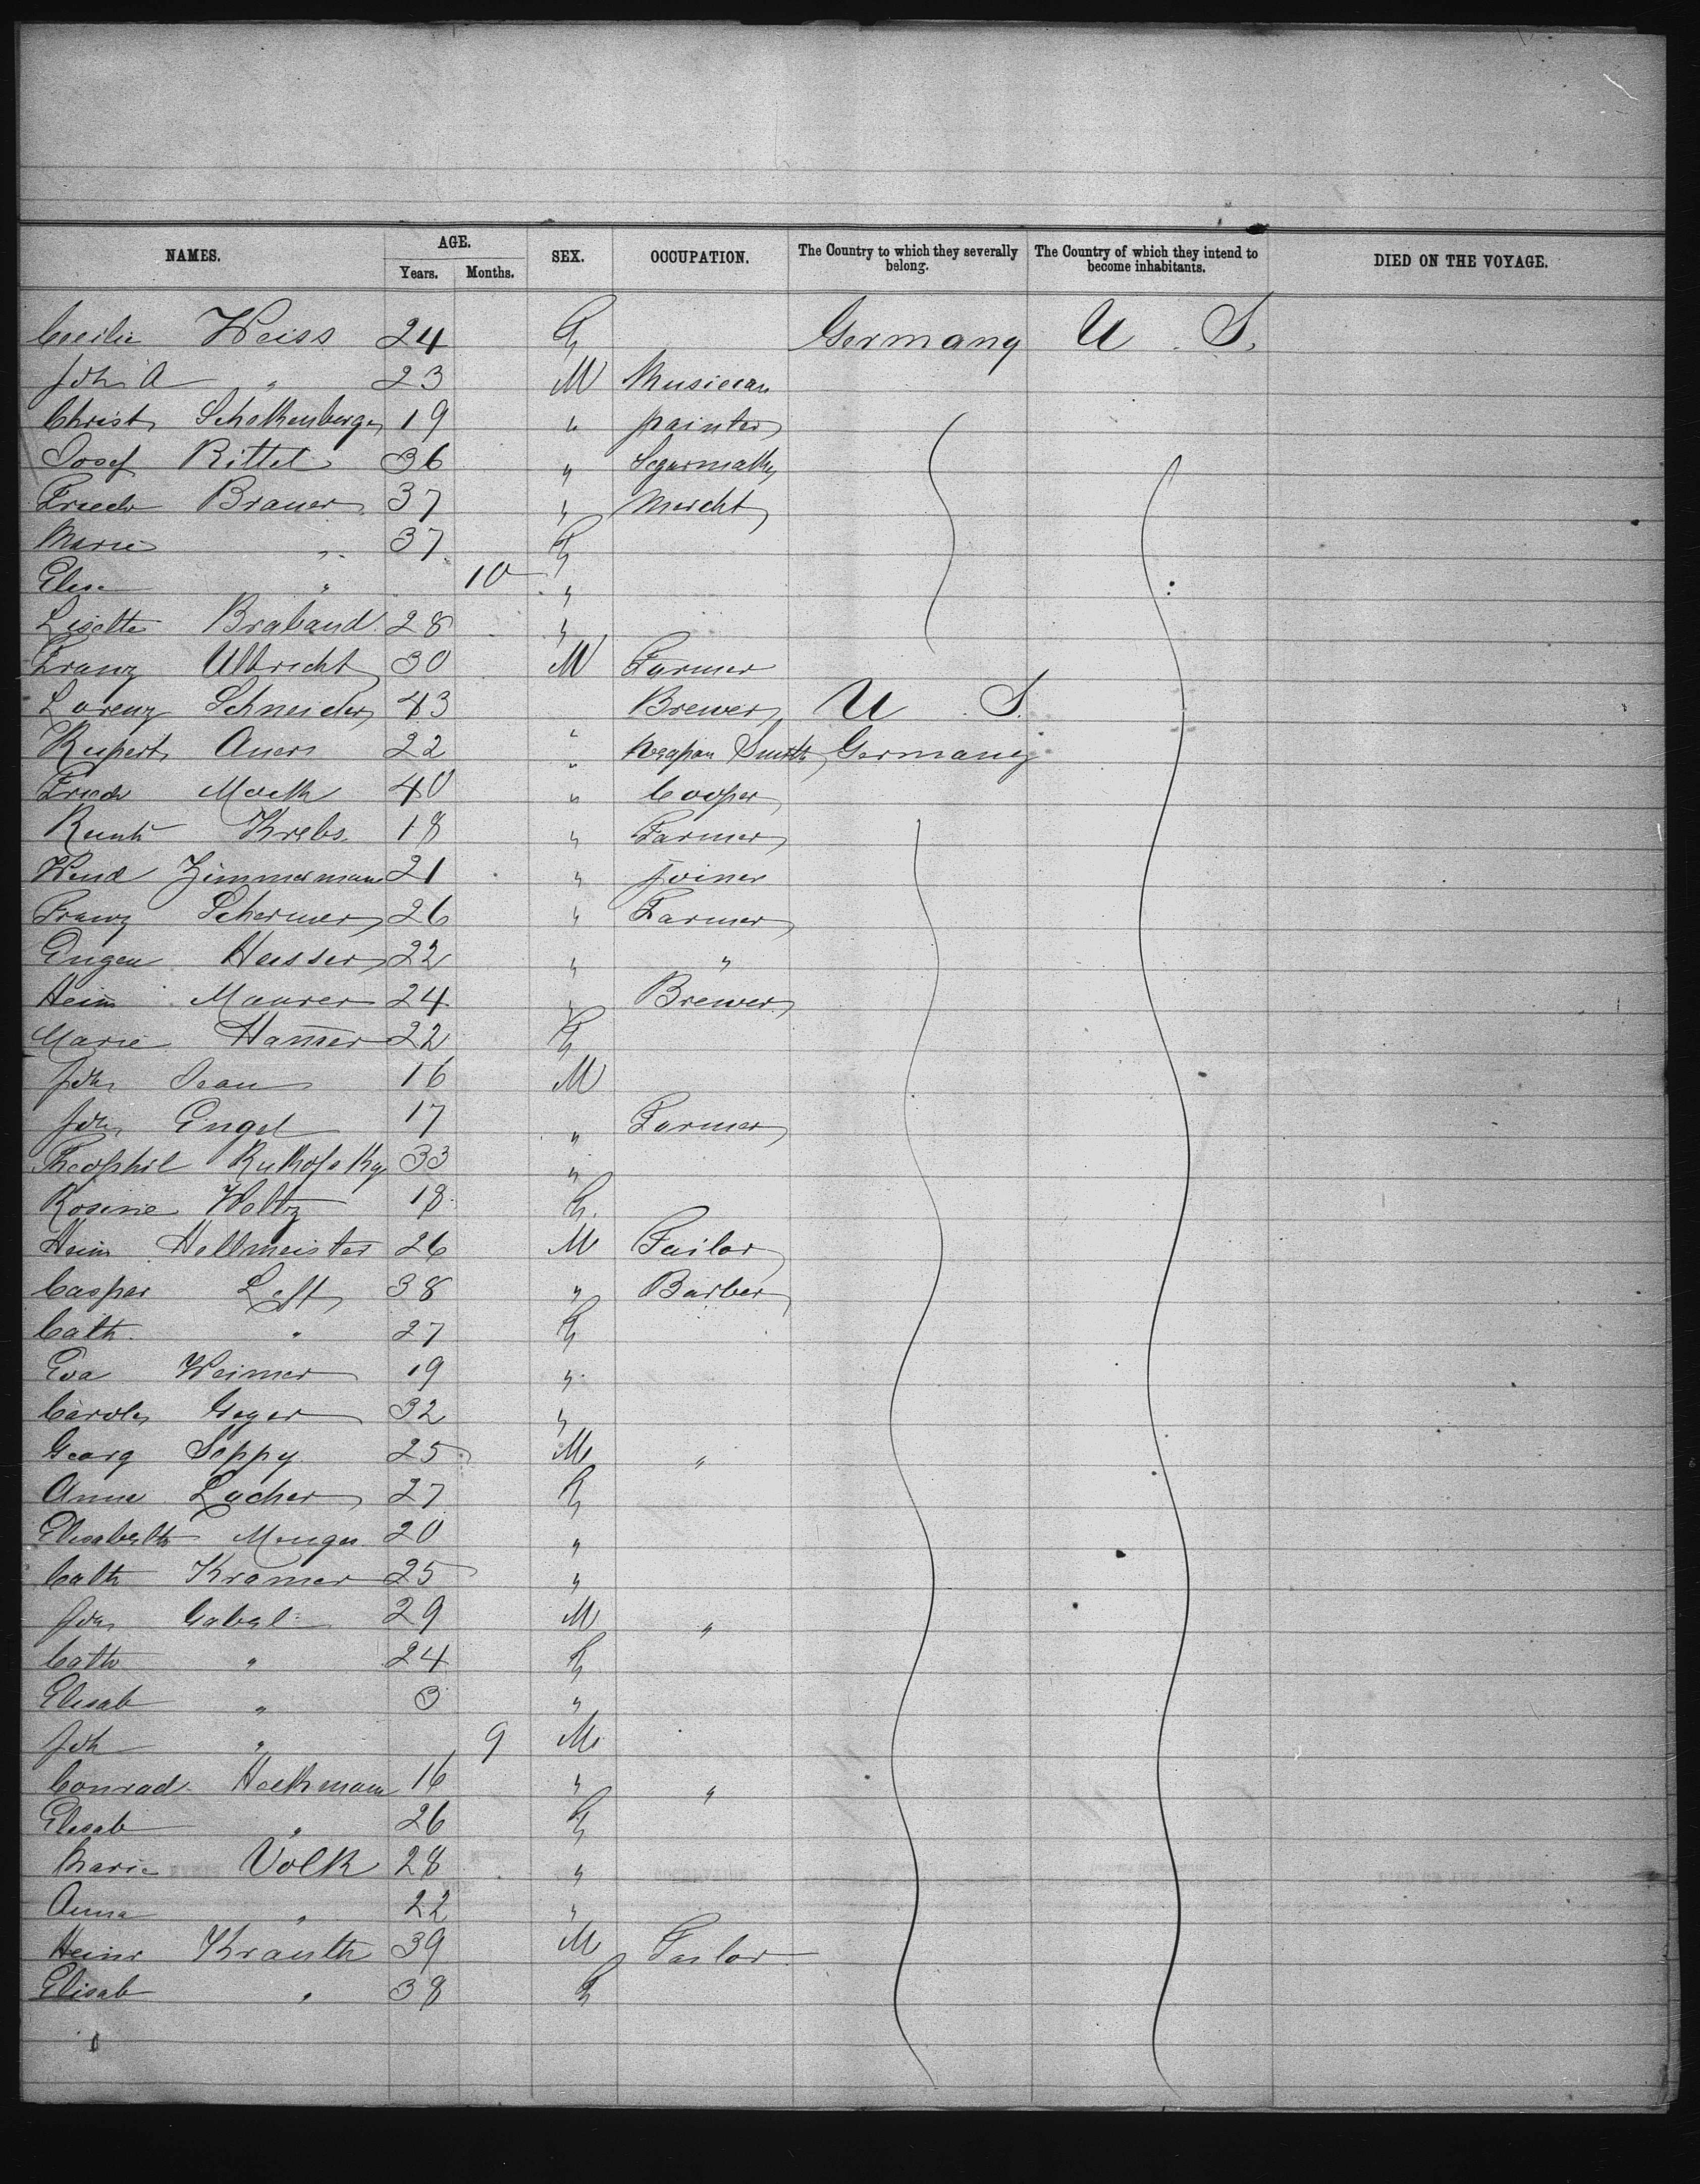 NAMES. AGE. SEX. OCCUPATION. The Country to which they severally belong. The Country of which they intend to become inhabitants. DIED ON THE VOYAGE.
Years. Months.
Cecilie Weiss 24 Germany U S.
Joh. A " 23 M Musician
Christ. 19 " painter
Josef Rittel 36 "
Friedr Brauer 37 " Mercht
Marie " 37
Elise " 10 "
Lisette Braband 28 "
Franz Albrecht 30 M Farmer
Lorenz Schneider 43 Brewer U S.
Rupert Auer 22 " Weapon Smith Germany
Friedr 40 " Cooper
Krebs 18 " Farmer
Wend Zimmermann 21 " Joiner
Franz Schermer 26 " Farmer
Eugen Heisser 22 " "
Heinr Maurer 24 " Brewer
Marie Hamer 22
Joh 16 M
Joh Engel 17 " Farmer
Theophil 33 "
Rosine Woltz 18
Heinr Hellmeister 26 M Tailor
Casper Loft 38 " Barber
Cath. " 27
Eva Weimer 19 "
Carole Geyer 32 "
Georg Seppy 25 M "
Anna Lacher 27
Elisabeth Menges 20 "
Cath Kramer 25 "
Joh Gabel 29 M "
Cath " 24
Elisab " 3 "
Joh " 9 M
Conrad Heckmann 16 " "
Elisab " 26
Marie Volk 28 "
Anna " 22 "
Heinr Krauth 39 M Tailor
Elisab " 38